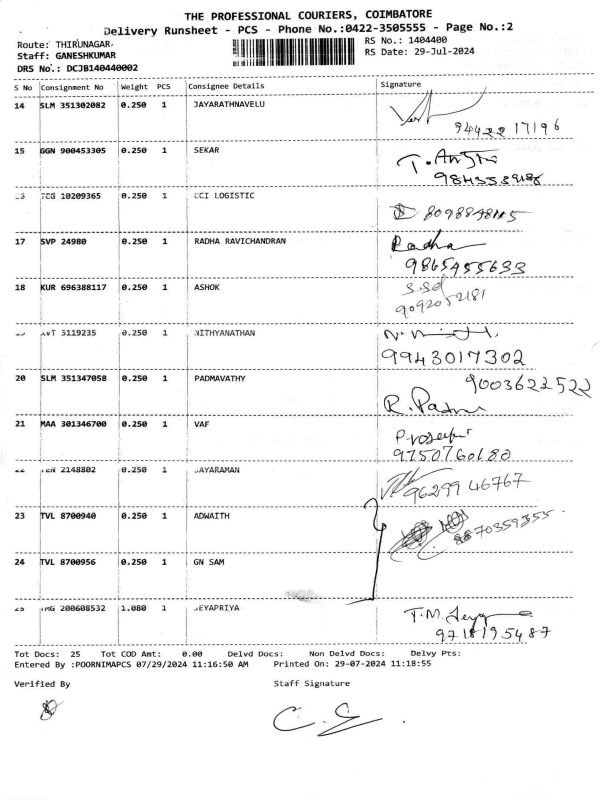 THE PROFESSIONAL COURIERS, COIMBATORE
Delivery Runsheet - PCS - Phone No.:0422-3505555 - Page No.:2
Route: THIRUNAGAR
RS No.: 1404400
Staff: GANESHKUMAR
RS Date: 29-Jul-2024
DRS No.: DCJB140440002
S No Consignment No Weight PCS Consignee Details Signature
14 SLM 351302082 0.250 1 JAYARATHNAVELU
9442217196
15 GGN 900453305 0.250 1 SEKAR
16 TCG 10209365 0.250 1 CCI LOGISTIC
17 SVP 24980 0.250 1 RADHA RAVICHANDRAN Radha
9865455633
18 KUR 696388117 0.250 1 ASHOK
9092052181
5119235 0.250 1 NITHYANATHAN
9943017302
20 SLM 351347058 0.250 1 PADMAVATHY 9003622522
R. Padm
21 MAA 301346700 0.250 1 VAF
9750760180
2148802 0.250 1 JAYARAMAN
9629946767
23 TVL 8700940 0.250 1 ADWAITH
8870359355
24 TVL 8700956 0.250 1 GN SAM
25 200608532 1.080 1 JEYAPRIYA T.M.
9718195487
Tot Docs: 25 Tot COD Amt: 0.00 Delvd Docs: Non Delvd Docs: Delvy Pts:
Entered By :POORNIMAPCS 07/29/2024 11:16:50 AM Printed On: 29-07-2024 11:18:55
Verified By Staff Signature